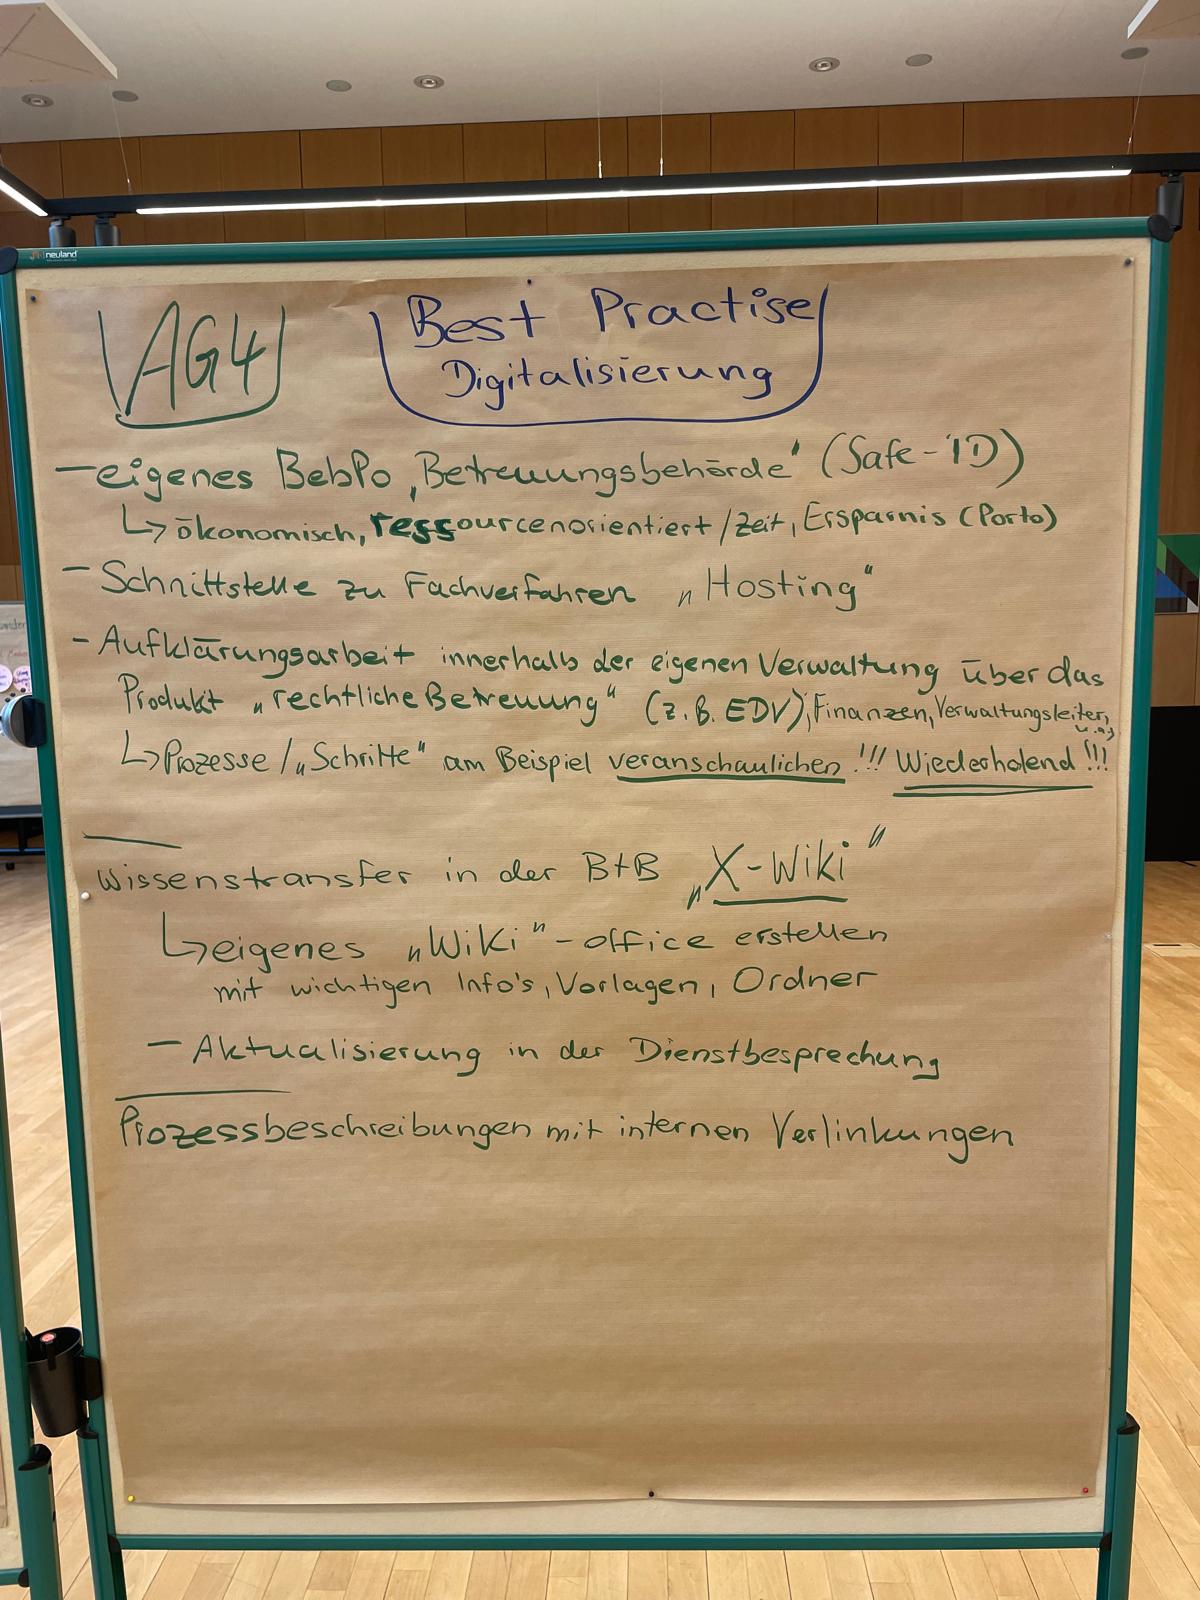 neuland
AG4
Best Practise
Digitalisierung
– eigenes BebPo „Betreuungsbehörde“ (Safe-ID)
↳ ökonomisch, ressourcenorientiert / Zeit, Ersparnis (Porto)
– Schnittstelle zu Fachverfahren „Hosting“
– Aufklärungsarbeit innerhalb der eigenen Verwaltung über das
Produkt „rechtliche Betreuung“ (z.B. EDV), Finanzen, Verwaltungsleiter,
u.a.)
↳ Prozesse / „Schritte“ am Beispiel veranschaulichen !!! Wiederholend !!!
Wissenstransfer in der BtB „X-Wiki“
↳ eigenes „Wiki“-office erstellen
mit wichtigen Info's, Vorlagen, Ordner
– Aktualisierung in der Dienstbesprechung
Prozessbeschreibungen mit internen Verlinkungen